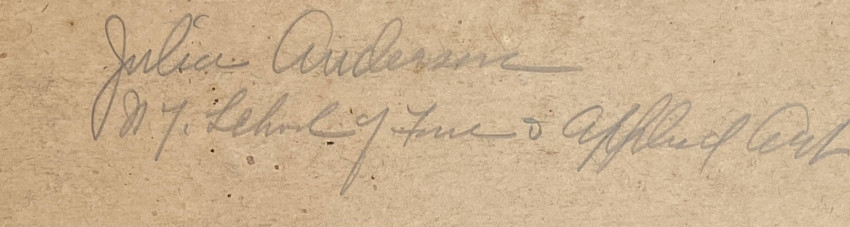 Julia Anderson
N.Y. School of Fine & Applied Art